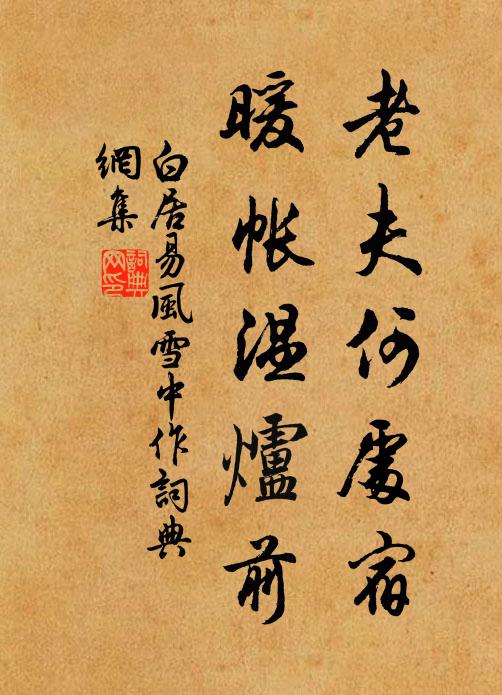 老夫何處宿
暖帳温爐前
白居易風雪中作詞典
網集
詞典
网印